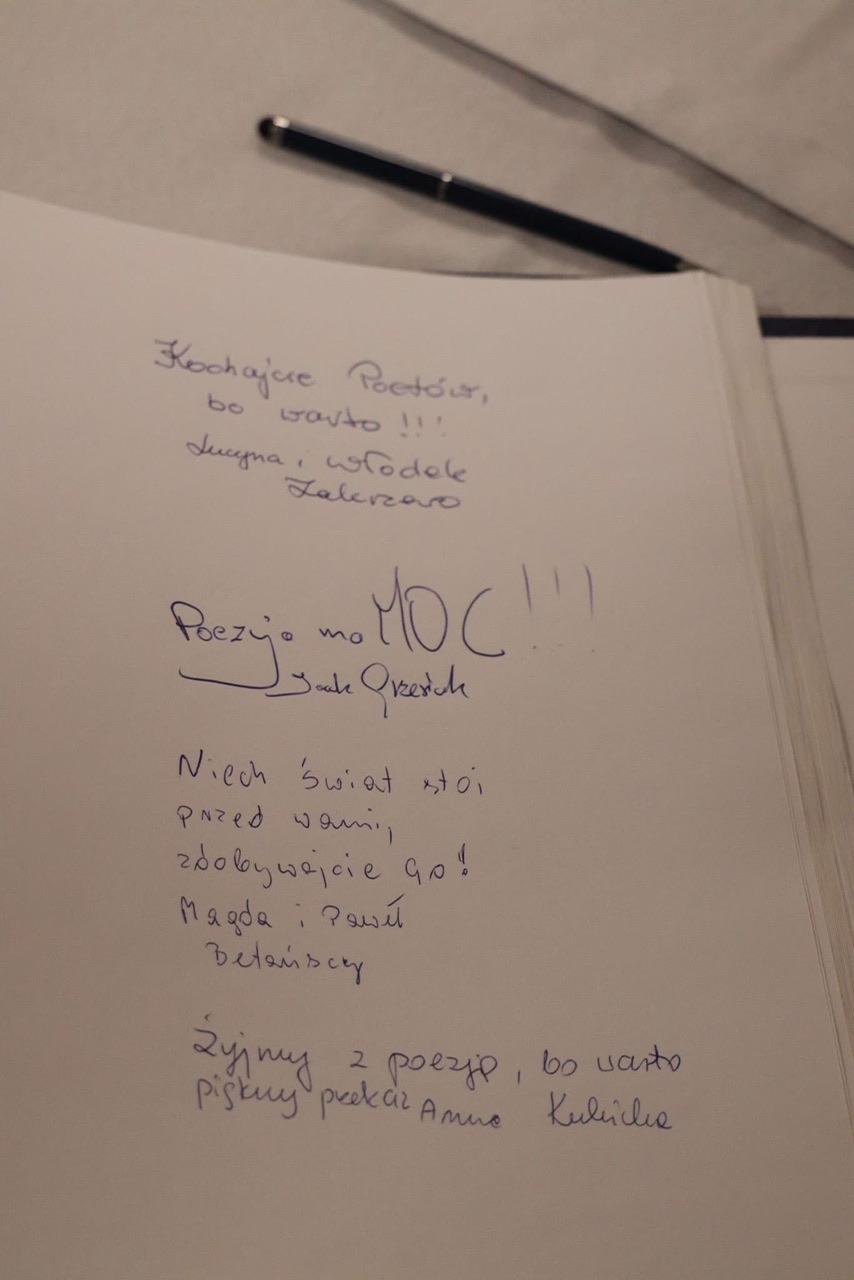 Kochajcie Poetów,
bo warto !!!
Lucyna i Włodek
Zakrzewo
Poezja ma MOC !!!
Niech świat stoi
przed wami,
zdobywajcie go!
Magda i Paweł
Betańscy
Żyjmy z poezją, bo warto
piękny przekaz Anna Kubicka